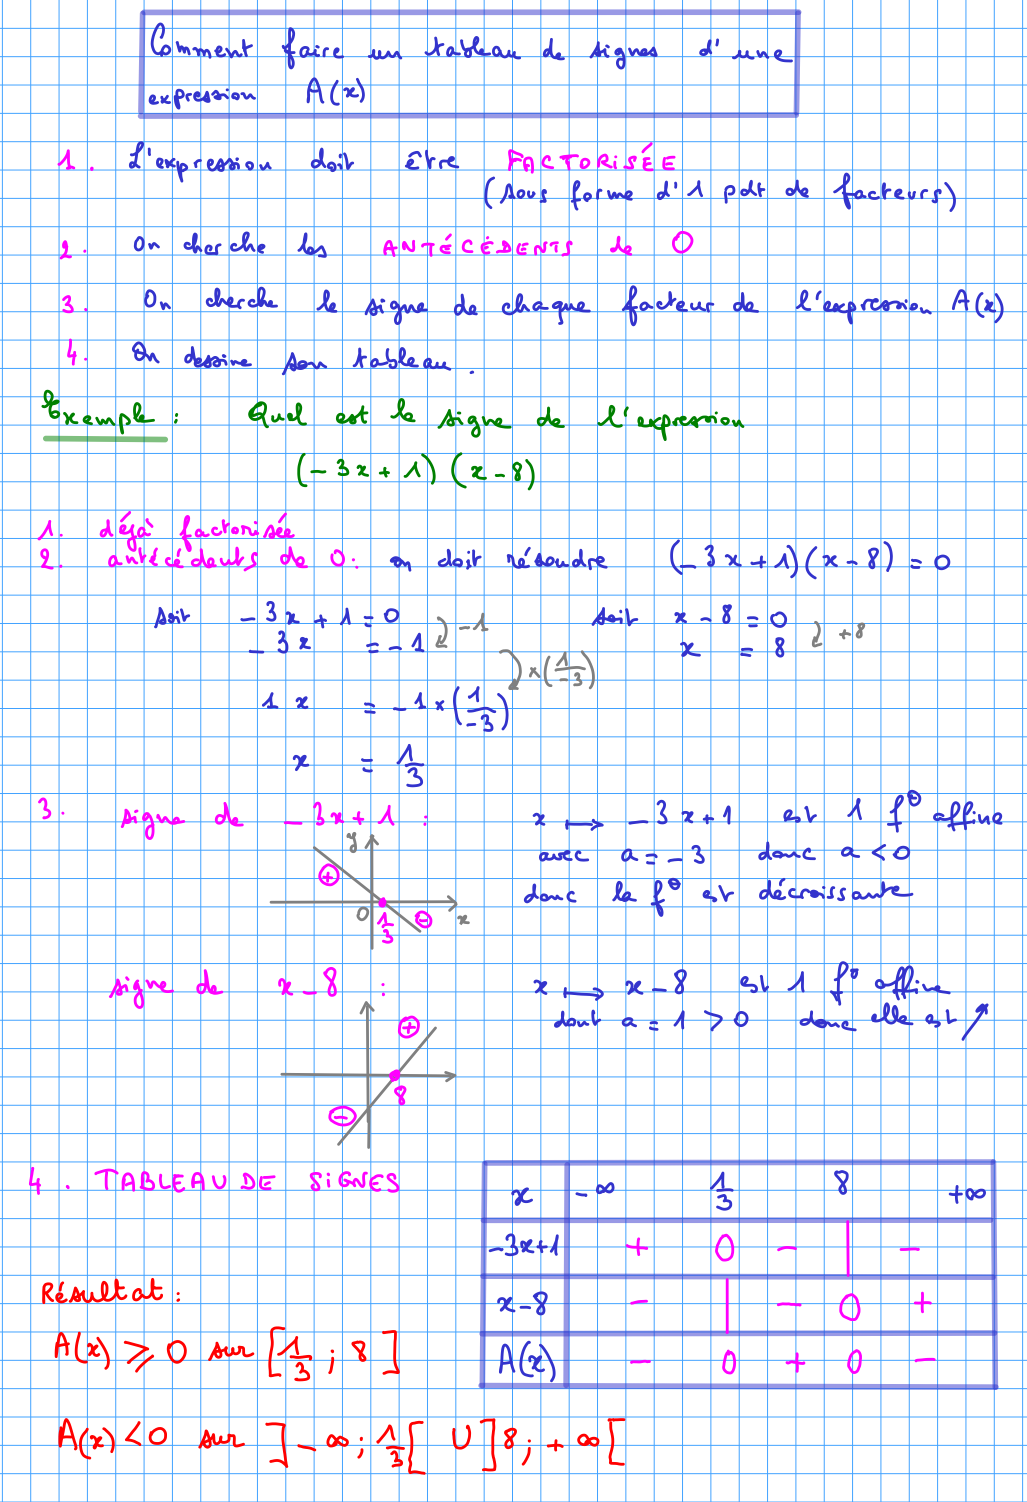 Comment faire un tableau de signes d'une
expression A(x)
1. L'expression doit être FACTORISÉE
(sous forme d'1 pdt de facteurs)
2. On cherche les ANTÉCÉDENTS de 0
3. On cherche le signe de chaque facteur de l'expression A(x)
4. On dessine son tableau.
Exemple : Quel est le signe de l'expression
(-3x+1)(x-8)
1. déjà factorisée
2. antécédents de 0: on doit résoudre (-3x+1)(x-8) = 0
soit -3x+1 = 0 -1 soit x-8 = 0 +8
-3x = -1 x = 8
×(1/-3)
1x = -1×(1/-3)
x = 1/3
3. signe de -3x+1 : x ⟼ -3x+1 est 1 f° affine
avec a = -3 donc a < 0
donc la f° est décroissante
y
+
0 1/3 - x
signe de x-8 : x ⟼ x-8 est 1 f° affine
dont a = 1 > 0 donc elle est ↗
+
8
-
4. TABLEAU DE SIGNES
x -∞ 1/3 8 +∞
-3x+1 + 0 - | -
x-8 - | - 0 +
A(x) - 0 + 0 -
Résultat :
A(x) ⩾ 0 sur [1/3 ; 8]
A(x) < 0 sur ]-∞; 1/3[ U ]8; +∞[